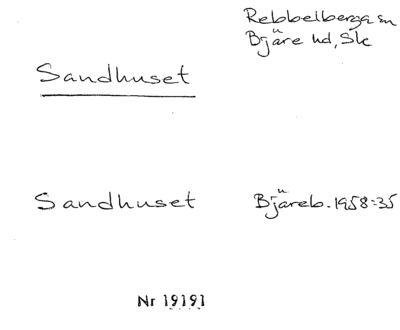 Rebbelberga sn
Bjäre hd, Sk
Sandhuset
Sandhuset
Bjäreb. 1958:35
Nr 19191